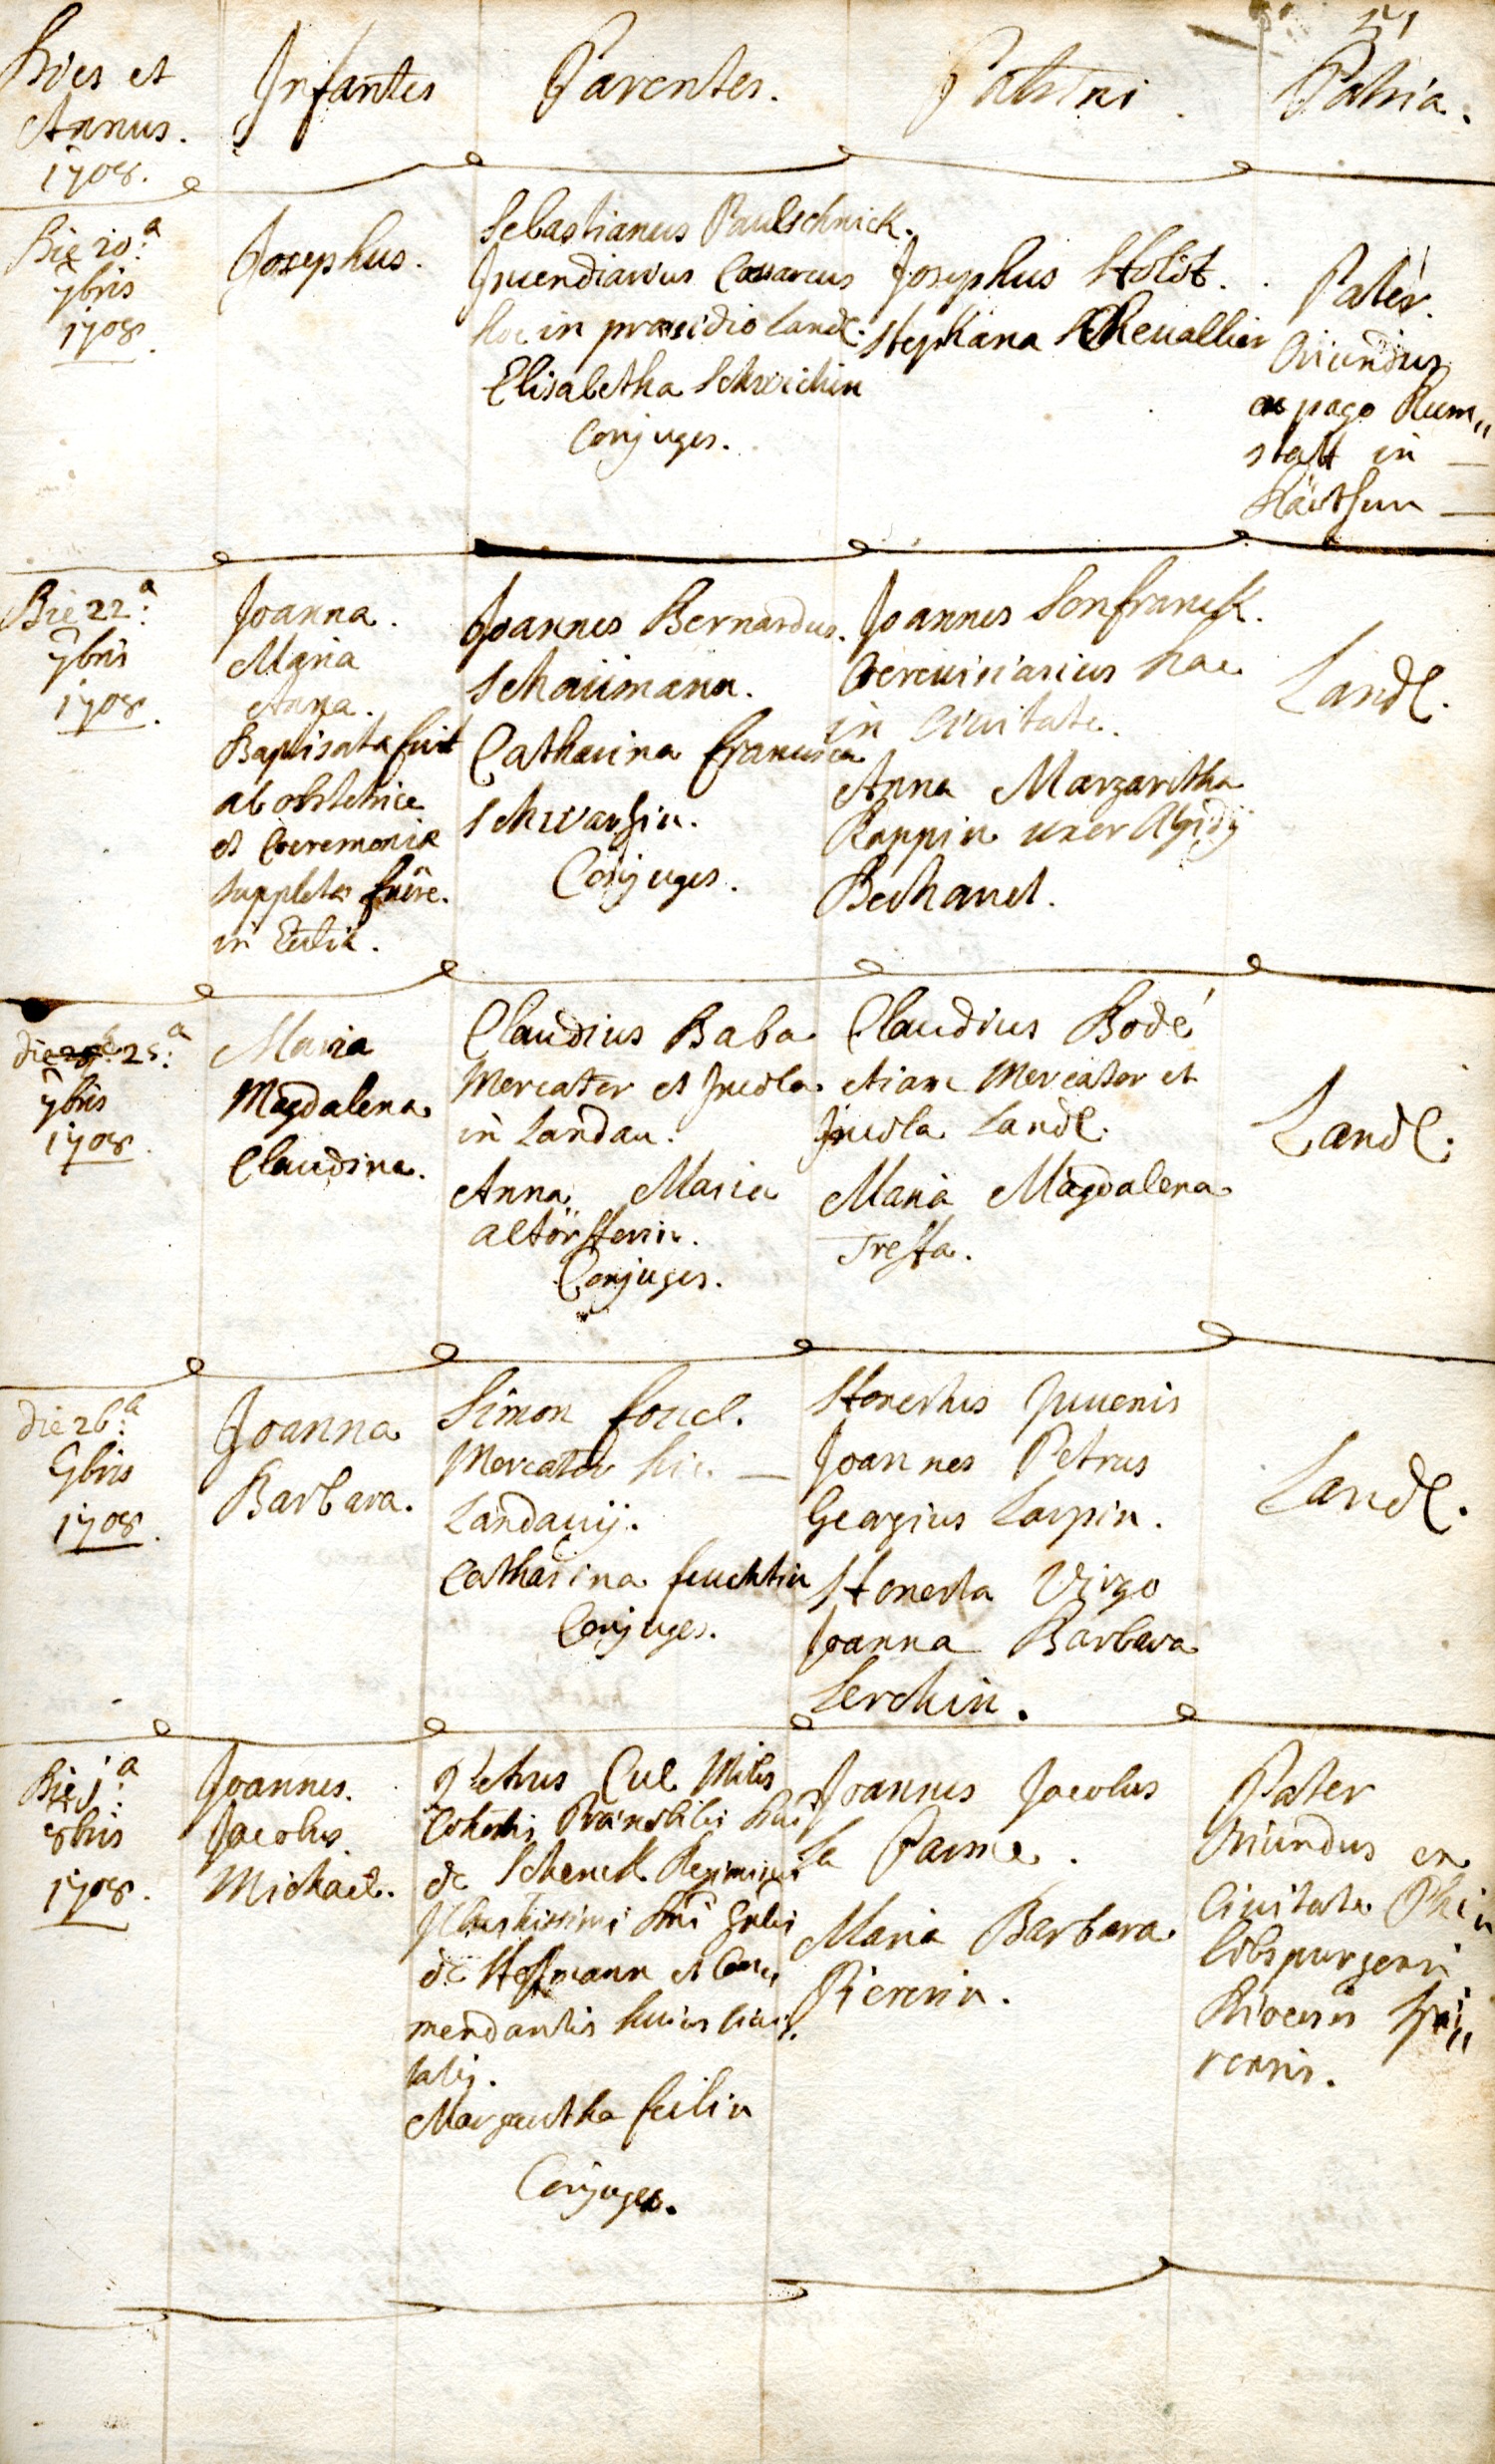 Dies et
Annus.
1708.
Infantes
Parentes.
Patrini.
Patria.
Die 20.a
7bris
1708.
Josephus.
Sebastianus Paulschnick.
Incendiarius Caesareus
hoc in praesidio Landl.
Elisabetha
Conjuges.
Josephus
Stephana Chevallier
Pater
Oriundus
ex pago Rum„
statt in —
Die 22.a
7bris
1708.
Joanna.
Maria
Anna.
Baptisata fuit
ab obstetrice
et Ceremoniae
suppletae fuere.
in Eccliâ.
Joannes Bernardus.
Schaümann.
Catharina Francisca
Schwartzin.
Conjuges.
Joannes Sonfranck.
Cerevisiarius hac
in Civitate.
Anna Margaretha
Rappin uxor Agidÿ
Bechanet.
Landl.
die 25.a
7bris
1708.
Maria
Magdalena
Claudina.
Claudius Baba
Mercator et Incola
in Landau.
Anna Maria
altörfferin.
Conjuges.
Claudius Bodé
etiam Mercator et
Incola Landl.
Maria Magdalena
Treffa.
Landl.
die 26.a
7bris
1708.
Joanna
Barbara.
Simon
Mercator hic —
Landavij.
Catharina feuchtin
Conjuges.
Honestus Juvenis
Joannes Petrus
Georgius Larpin.
Honesta Virgo
Joanna Barbara
Lerchin.
Landl.
Die 1.a
8bris
1708.
Joannes.
Jacobus.
Michael.
Petrus Cul Miles
Cohortis Praenobilis Dni
de Schenck Regiminis
Illustrissimi Dni
de Hoffmann et Com„
mendantis huius Civi„
tatis.
Margaretha feilin
Conjuges.
Joannes Jacobus
La Parme.
Maria Barbara
Riererin.
Pater
Oriundus ex
Civitate Phi„
libspurgensi
Dioecesis Spi„
rensis.